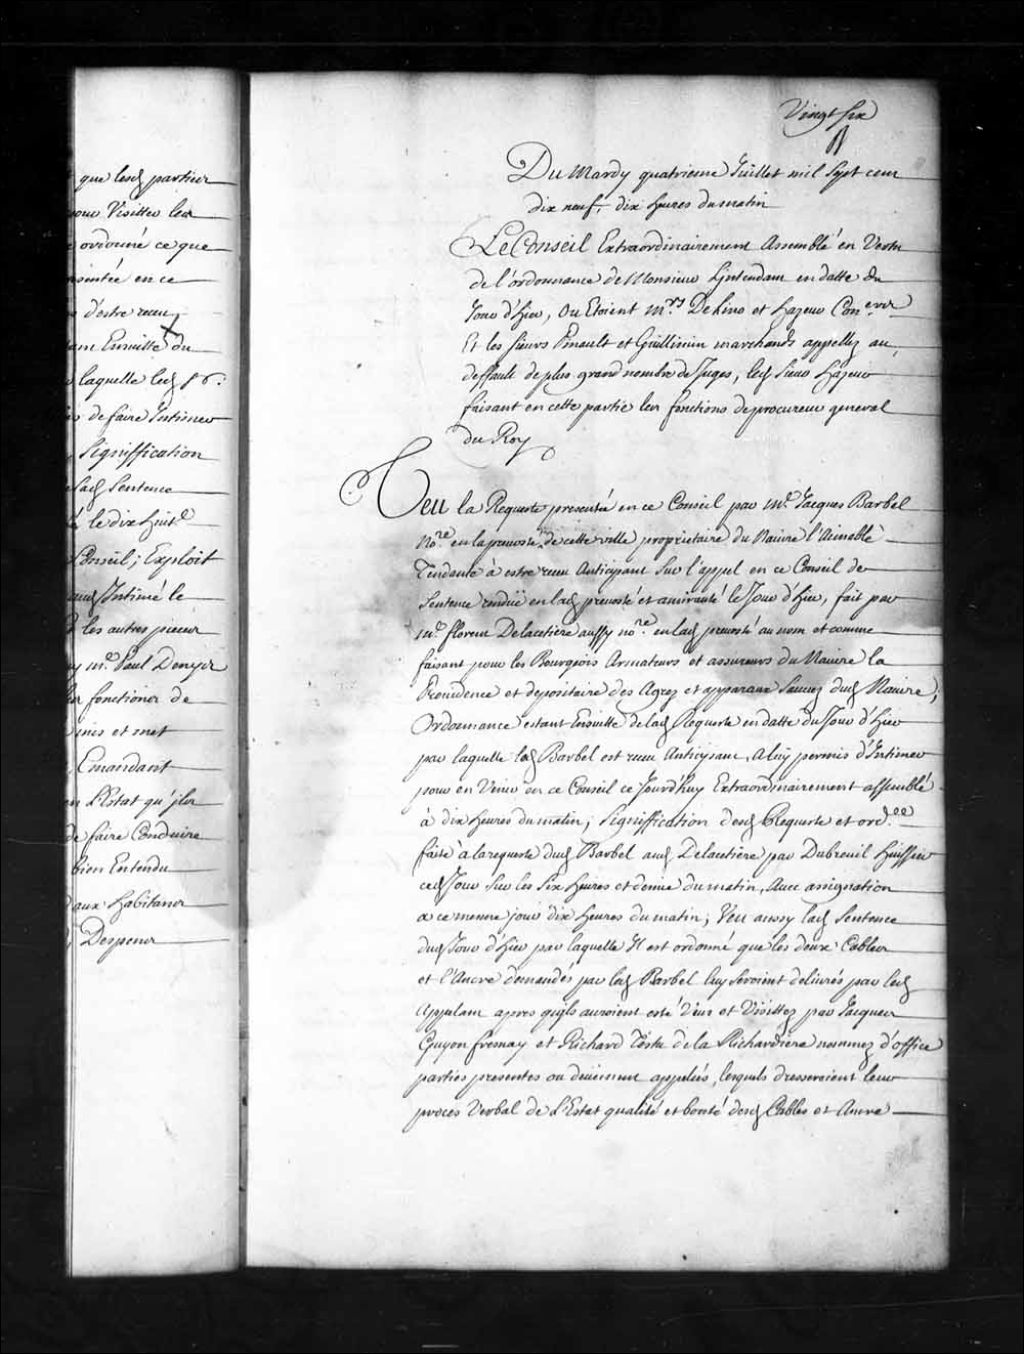 que lesd parties
pour Visitter les
ordonné ce que
presentée en ce
d'estre receu
Ensuitte du
laquelle led
de faire Intimer
Signiffication
lad Sentence
le dix huit.e
Conseil; Exploit
aud Intimé le
les autres pieces
m.e Paul Denys
les fonctions de
mis et met
Emandant
L'Estat qu'jls
de faire Conduire
bien Entendu
aux habitans
Despens
Vingt Six
Du Mardy quatrieme Juillet mil Sept cens
dix neuf, dix heures du matin
Le Conseil Extraordinairement Assemblé en Vertu
de l'ordonnance de Monsieur Lintendant en datte du
Jour d'hier, ou Etoient M.rs Delino et hazeur Con.ers
Et les sieurs Pinault et Guillimin marchands appellez au
deffault de plus grand nombre de Juges, led sieur hazeur
faisant en cette partie les fonctions de procureur general
du Roy
Veu la Requeste presentée en ce Conseil par M.e Jacques Barbel
No.re en la prevosté de cette ville proprietaire du Navire l'Aimable
Tendante à estre receu Anticipant Sur l'appel en ce Conseil de
Sentence rendüe en lad prevosté et amirauté le Jour d'hier, fait par
M.e florent Delacetiere aussy no.re en lad prevosté au nom et comme
faisant pour les Bourgeois Armateurs et assureurs du Navire la
Providence et depositaire des Agrez et apparaux Sauvez dud Navire;
Ordonnance estant Ensuitte de lad Requeste en datte du Jour d'hier
par laquelle led Barbel est receu Anticipant, A luy permis d'Intimer
pour en Venir en ce Conseil ce Jourd'huy Extraordinairement assemblé
à dix heures du matin; Signiffication desd Requeste et ord.ce
faite à la requeste dud Barbel aud Delacetiere par Dubreuil huissier
ced Jour Sur les Six heures et demie du matin, Avec assignation
a ce mesme jour dix heures du matin; Veu aussy lad Sentence
dud Jour d'hier par laquelle Il est ordonné que les deux Cables
et l'Ancre demandés par led Barbel luy Seroient delivrés par led
Appelant apres qu'jls auroient esté Veus et Visittez par Jacques
Guyon fresnay et Richard Testu de la Richardiere nommez d'office
parties presentes ou deüement appelées, lesquels dresseroient leur
procès Verbal de L'Estat qualité et bonté desd Cables et Ancre